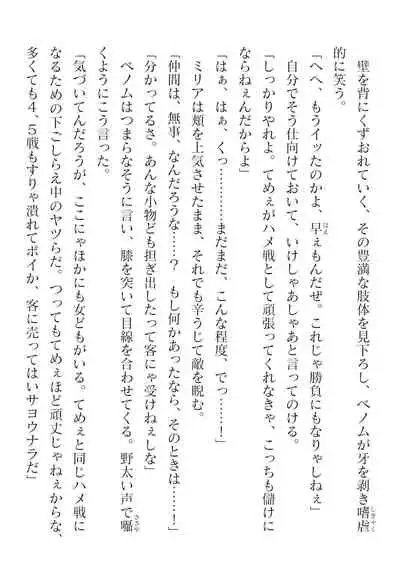 壁を背にくずおれていく、その豊満な肢体を見下ろし、ベノムが牙を剥き嗜虐
的に笑う。
「へへ、もうイッたのかよ、早ぇもんだぜ。これじゃ勝負にもなりゃしねぇ」
自分でそう仕向けておいて、いけしゃあしゃあと言ってのける。
「しっかりやれよ。てめぇがハメ戦として頑張ってくれなきゃ、こっちも儲けに
ならねぇんだからよ」
「はぁ、はぁ、くっ…………まだまだ、こんな程度、でっ……！」
ミリアは頬を上気させたまま、それでも辛うじて敵を睨む。
「仲間は、無事、なんだろうな……？　もし何かあったなら、そのときは……！」
「分かってるさ。あんな小物ども担ぎ出したって客にゃ受けねぇしな」
ベノムはつまらなそうに言い、膝を突いて目線を合わせてくる。野太い声で囁
くようにこう言った。
「気づいてんだろうが、ここにゃほかにも女どもがいる。てめぇと同じハメ戦に
なるための下ごしらえ中のヤツらだ。つってもてめぇほど頑丈じゃねぇからな、
多くても４、５戦もすりゃ潰れてポイか、客に売ってはいサヨウナラだ」